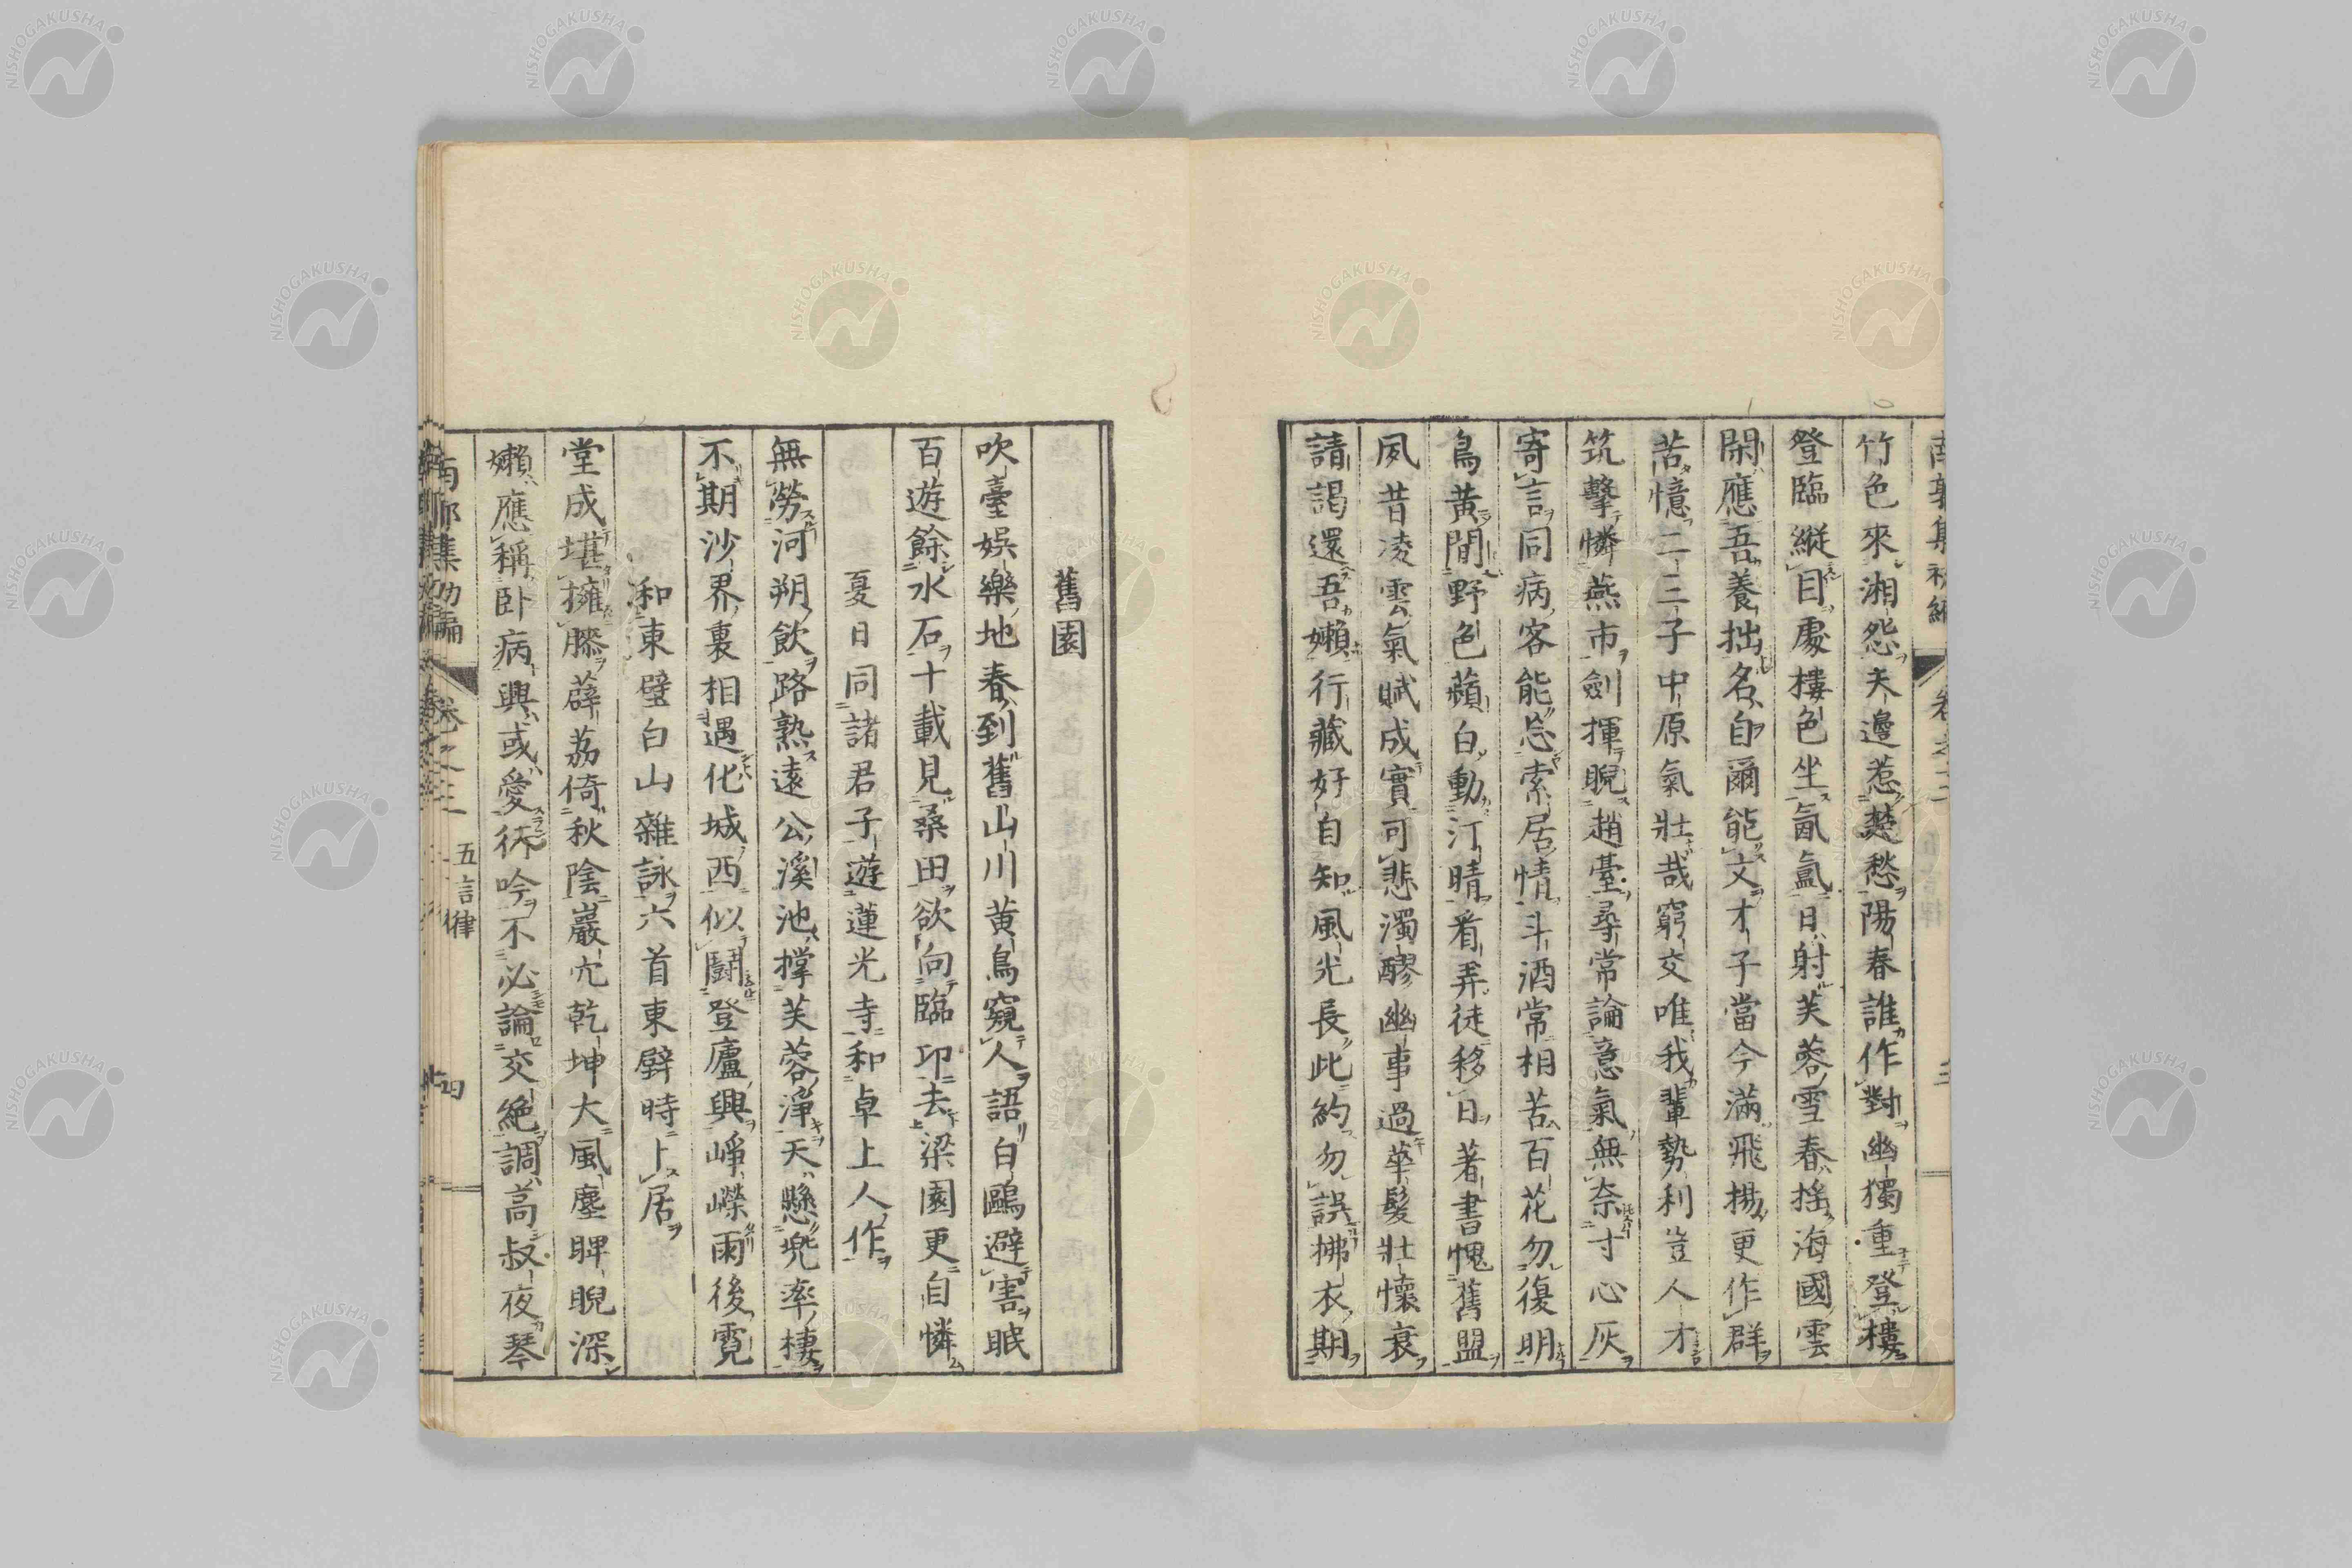 竹色來湘怨天邊惹楚愁陽春誰作對幽獨重登樓
登臨縱目處樓色坐氤氳日射芙蓉雪春搖海國雲
閑應吾養拙名自爾能文才子當今滿飛揚更作群
苦憶二三子中原氣壯哉窮交唯我輩勢利豈人才
筑擊憐燕市劍揮睨趙臺尋常論意氣無奈寸心灰
寄言同病客能忘索居情斗酒常相苦百花勿復明
鳥黃間野色蘋白動汀晴看弄徒移日著書愧舊盟
夙昔凌雲氣賦成實可悲濁醪幽事過華髮壯懷衰
請謁還吾嬾行藏好自知風光長此約勿誤拂衣期
舊園
吹臺娛樂地春到舊山川黃鳥窺人語白鷗避害眠
百遊餘水石十載見桑田欲向臨卭去梁園更自憐
夏日同諸君子遊蓮光寺和卓上人作
無勞河朔飲路熟遠公溪池擋芙蓉淨天懸兜率棲
不期沙界裏相遇化城西似鬪登廬興崢嶸雨後霓
和東壁白山雜詠六首東壁時卜居
堂成堪擁膝薜荔倚秋陰巖穴乾坤大風塵睥睨深
嬾應稱臥病興或愛行吟不必論交絕調高叔夜琴
南郭集初編 卷之三 五言律 四
NISHOGAKUSHA